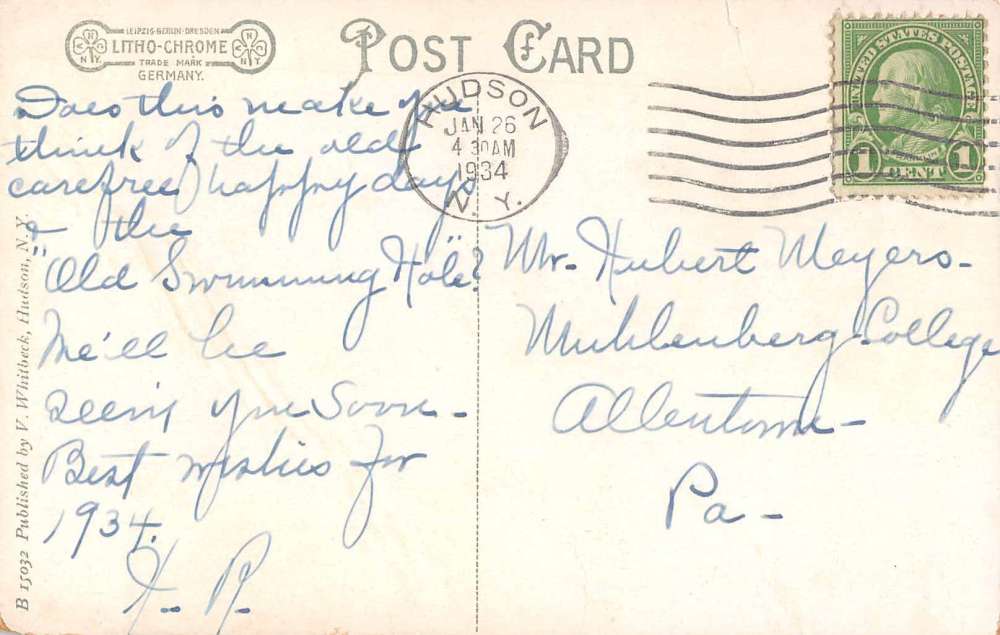 LEIPZIG·BERLIN·DRESDEN
LITHO-CHROME
TRADE MARK
GERMANY.
N
NY
N
NY
POST CARD
HUDSON
JAN 26
4 30AM
1934
N. Y.
UNITED STATES POSTAGE
FRANKLIN
1 CENT 1
Does this make you
think of the old
carefree happy days
& the
"Old Swimming Hole"?
We'll be
seeing you Soon -
Best wishes for
1934.
Mr. Hubert Meyers -
Muhlenberg College
Allentown -
Pa -
B 15032 Published by V. Whitbeck, Hudson, N. Y.